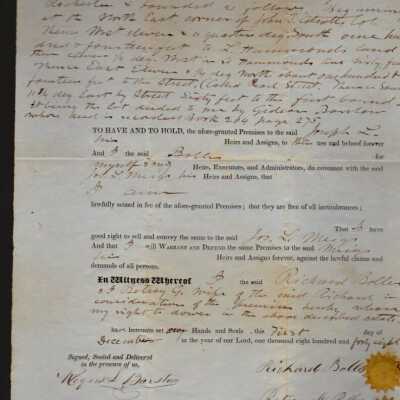 Rochester & bounded as follows Beginning
at the North East corner of John L. Lot
Thence West eleven & a quarter deg South one hun
dred & fourteen ft to L Hammonds Land
deg. West in L Hammonds line sixty feet
Thence East Eleven & 1/4 deg North about one hundred &
fourteen feet to the Street, (Called Pearl Street. Thence South
1/4 deg East by Street Sixty feet to the first bound
it being the lot deeded to me by Gideon Barstow
whose deed is recorded Book 204 page 275
TO HAVE AND TO HOLD, the afore-granted Premises to the said Joseph L
Heirs and Assigns, to use and behoof forever
And I the said Bolles for
myself and Heirs, Executors, and Administrators, do covenant with the said
Jos L. Meigs his Heirs and Assigns, that
I am
lawfully seized in fee of the afore-granted Premises; that they are free of all incumbrances;
That I have
good right to sell and convey the same to the said Jos. L. Meigs
And that I will WARRANT AND DEFEND the same Premises to the said Meigs
his Heirs and Assigns forever, against the lawful claims and
demands of all persons.
In Witness Whereof I the said Richard Bolles
& I Betsey G. wife of the said Richard in
consideration of the premises hereby
my right to dower in the above described estate
have hereunto set our Hands and Seals, this First day of
December in the year of our Lord, one thousand eight hundred and forty eight
Signed, Sealed and Delivered
in the presence of us,
L Barstow
Richard Bolles